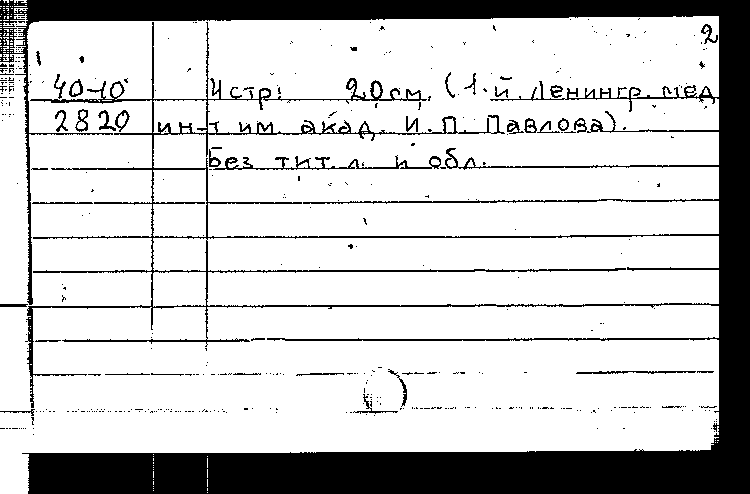 2
40-10 4 стр. 20 см. (1-й. Ленингр. мед
2820 ин-т им. акад. И. П. Павлова).
Без тит. л. и обл.